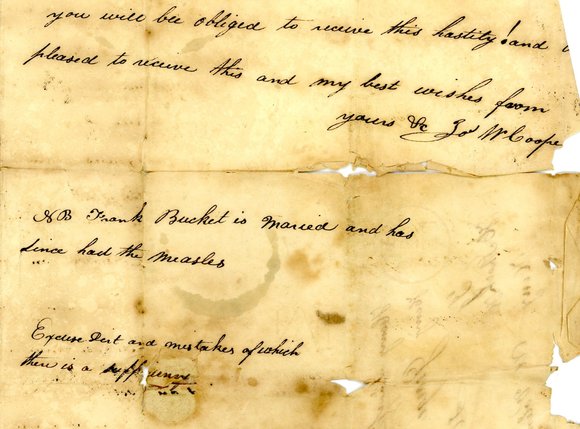 you will bee obliged to receive this hastily and
pleased to receive this and my best wishes from
yours &c Jos W Coope
NB Frank Bucket is Maried and has
since had the Measles
Excuse Dirt and mistakes of which
there is a